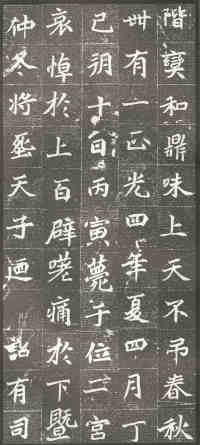 階燮和鼎味上天不弔春秋
卅有一正光四年夏四月丁
巳朔十日丙寅薨于位二宮
哀悼於上百辟嗟痛於下暨
仲冬將塟天子迺詔有司